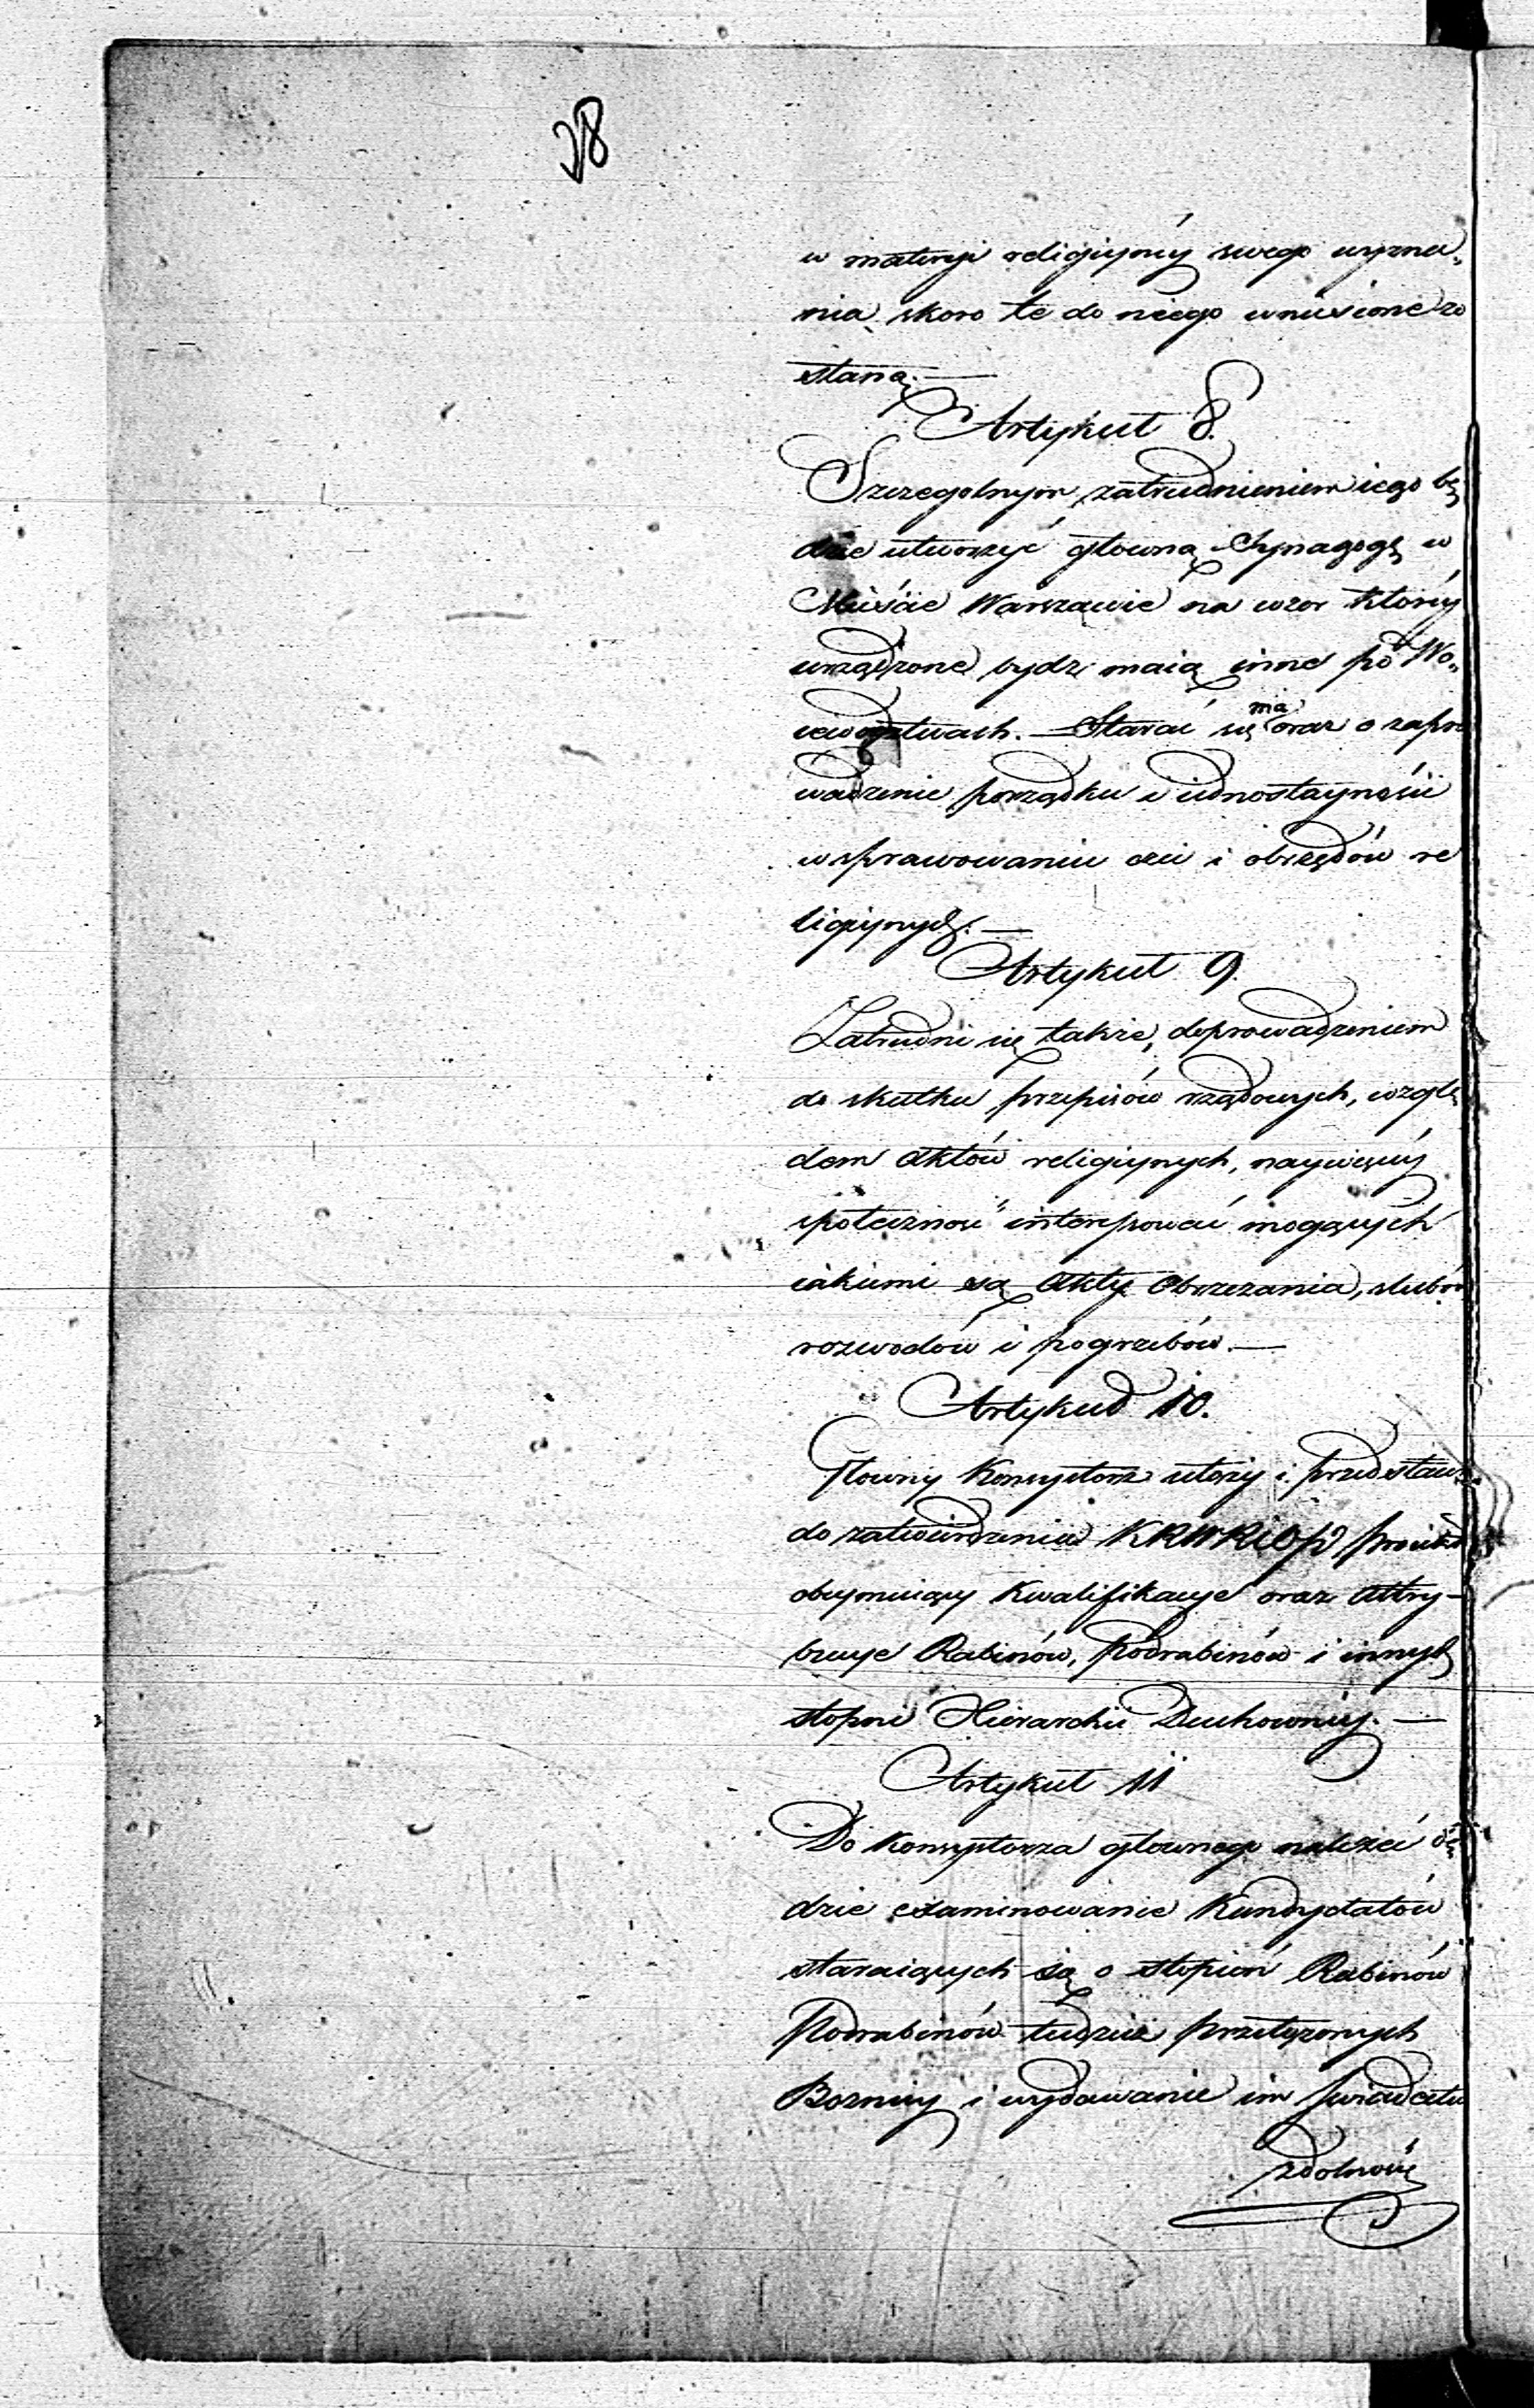 28
w materyi religiyney swego wyzna„
nia, skoro te do niego wniesione zo
staną. —
Artykuł 8.
Szczegolnym zatrudnieniem iego bę
dzie utworzyć głowną Synagogę w
Mieście Warszawie na wzor ktorey
urządzone bydź maią inne po Wo„
iewodztwach. — Starać się ma oraz o zapro
wadzenie porządku i iednostayności
w sprawowaniu czci i obrzędów re
ligiynych. —
Artykuł 9.
Zatrudni się także, doprowadzeniem
do skutku przepisów rządowych, wzglę
dem aktów religiynych, naywięcey
społeczność interesować mogących
iakiemi są Akty Obrzezania, slubów
rozwodów i pogrzebów. —
Artykuł 10.
Głowny Konsystorz ułoży i przedstawi
do zatwierdzenia KRWRiOP proiekt
obeymuiący Kwalifikacye oraz Attry-
bucye Rabinów, Podrabinów i innych
stopni Hierarchii Duchowney. —
Artykuł 11
Do Konsystorza głownego należeć bę
dzie examinowanie Kandydatów
staraiących się o stopień Rabinów
Podrabinów tudzież przełożonych
Boznicy i wydawanie im swiadectw
zdolności